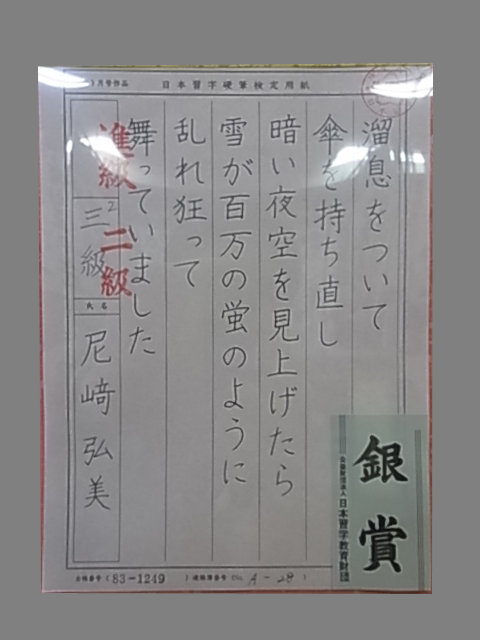 月号作品
日本習字硬筆検定用紙
溜息をついて
傘を持ち直し
暗い夜空を見上げたら
雪が百万の蛍のように
乱れ狂って
舞っていました
進級 二級
三級
氏名
尼﨑弘美
銀賞
公益財団法人 日本習字教育財団
会員番号(83-1249)
A-28